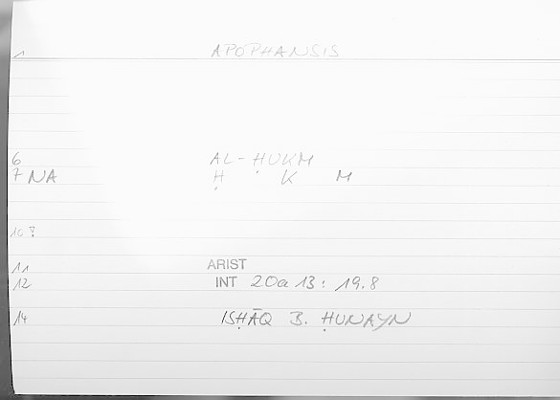 1 APOPHANSIS
6 AL-ḤUKM
7 NA Ḥ K M
10
11 ARIST
12 INT 20a 13: 19.8
14 ISḤĀQ B. ḤUNAYN